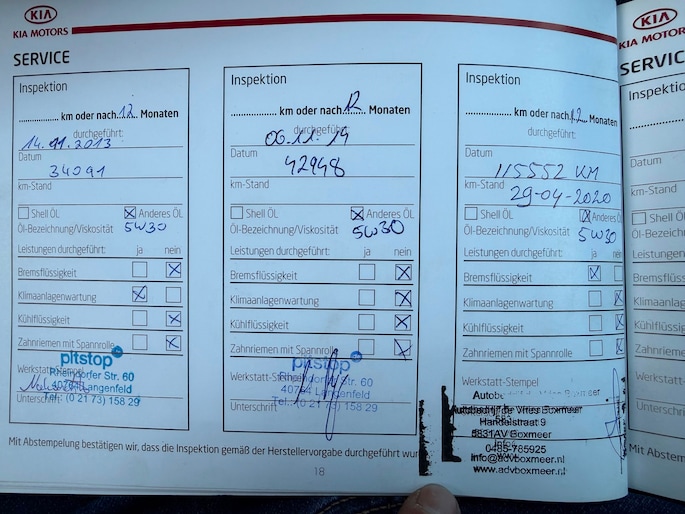 KIA
KIA MOTORS
SERVICE
Inspektion
................ km oder nach 12 Monaten
durchgeführt:
14.11.2013
Datum
34091
km-Stand
Shell ÖL
Anderes ÖL
Öl-Bezeichnung/Viskosität
5W30
Leistungen durchgeführt: ja nein
Bremsflüssigkeit
Klimaanlagenwartung
Kühlflüssigkeit
Zahnriemen mit Spannrolle
pitstop
Werkstatt-Stempel
Rheindorfer Str. 60
40764 Langenfeld
Unterschrift
Tel.: (0 21 73) 158 29
Inspektion
................ km oder nach 12 Monaten
durchgeführt:
06.11.14
Datum
42948
km-Stand
Shell ÖL
Anderes ÖL
Öl-Bezeichnung/Viskosität
5W30
Leistungen durchgeführt: ja nein
Bremsflüssigkeit
Klimaanlagenwartung
Kühlflüssigkeit
Zahnriemen mit Spannrolle
pitstop
Werkstatt-Stempel
Rheindorfer Str. 60
40764 Langenfeld
Unterschrift
Tel.: (0 21 73) 158 29
Inspektion
................ km oder nach 12 Monaten
durchgeführt:
Datum
115552 KM
km-Stand
29-04-2020
Shell ÖL
Anderes ÖL
Öl-Bezeichnung/Viskosität
5W30
Leistungen durchgeführt: ja nein
Bremsflüssigkeit
Klimaanlagenwartung
Kühlflüssigkeit
Zahnriemen mit Spannrolle
Werkstatt-Stempel
Autobedrijf de Vries Boxmeer
Handelstraat 9
5831AV Boxmeer
0485-785925
info@advboxmeer.nl
www.advboxmeer.nl
Mit Abstempelung bestätigen wir, dass die Inspektion gemäß der Herstellervorgabe durchgeführt
18
KIA
KIA MOTORS
SERVICE
Datum
km-Stand
Shell ÖL